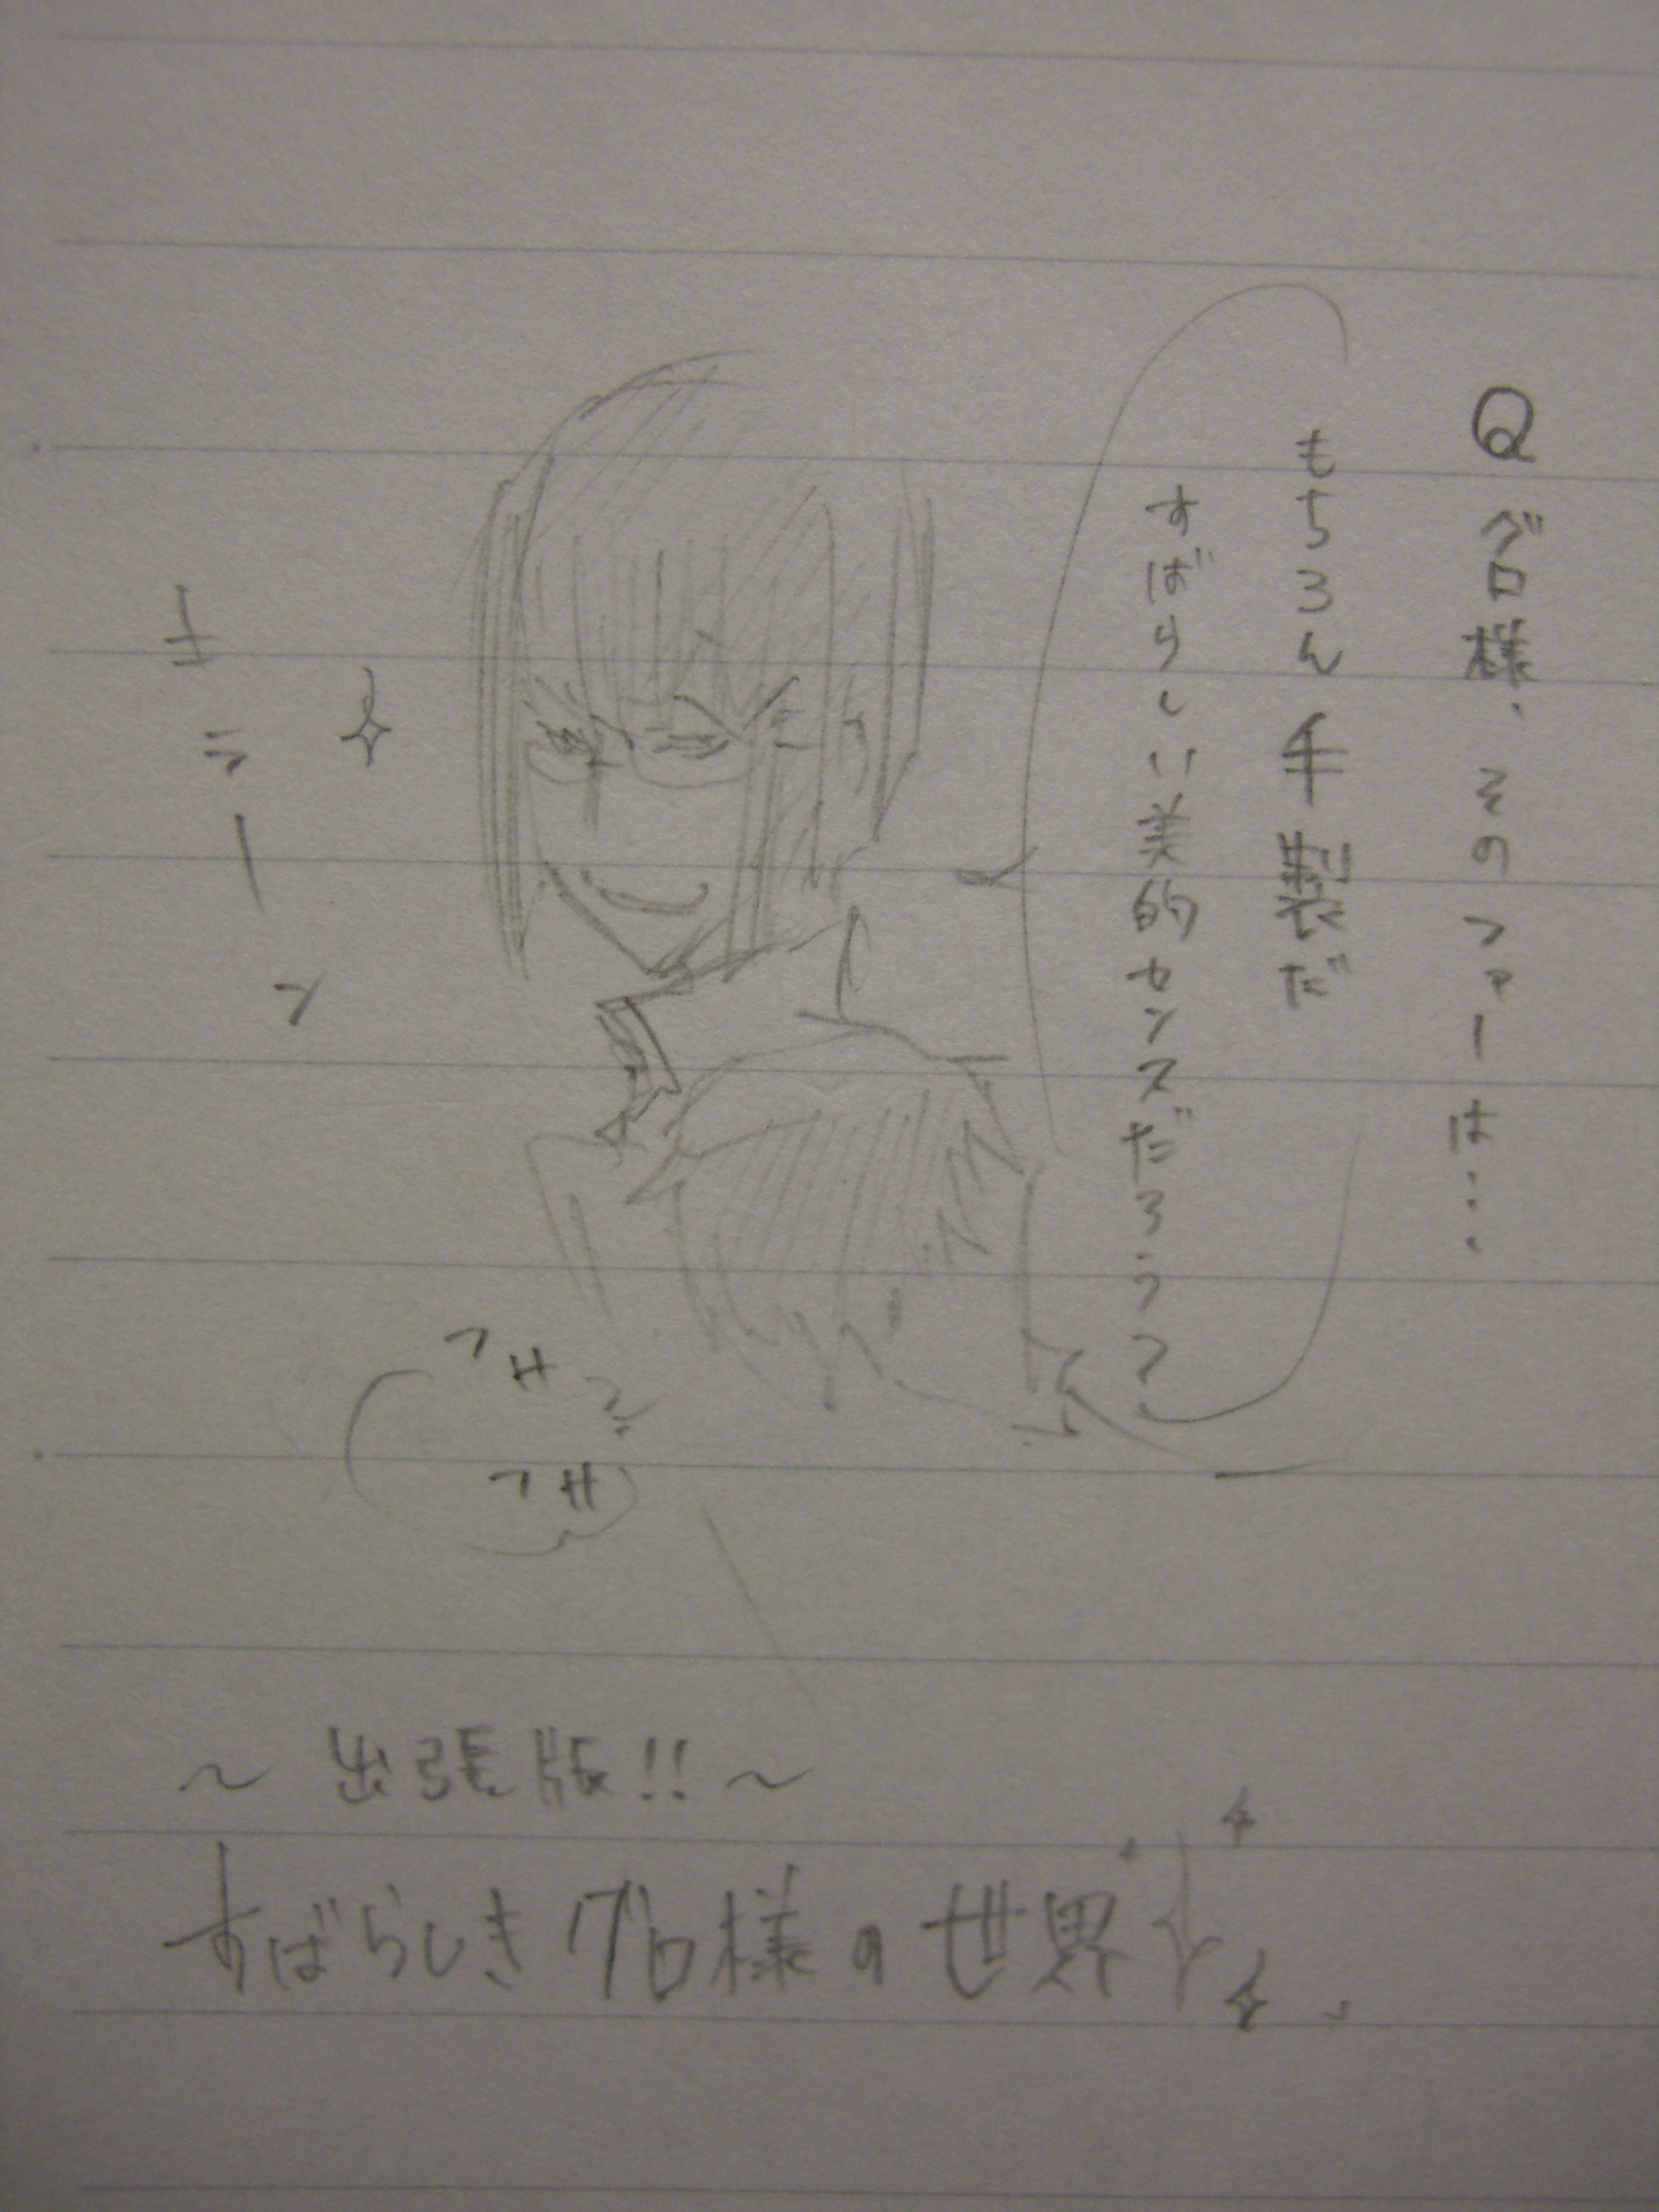 Q グロ様、そのファーは…、
もちろん手製だ
すばらしい美的センスだろう?
キラーン
フサ
フサ
～出張版!!～
すばらしきグロ様の世界